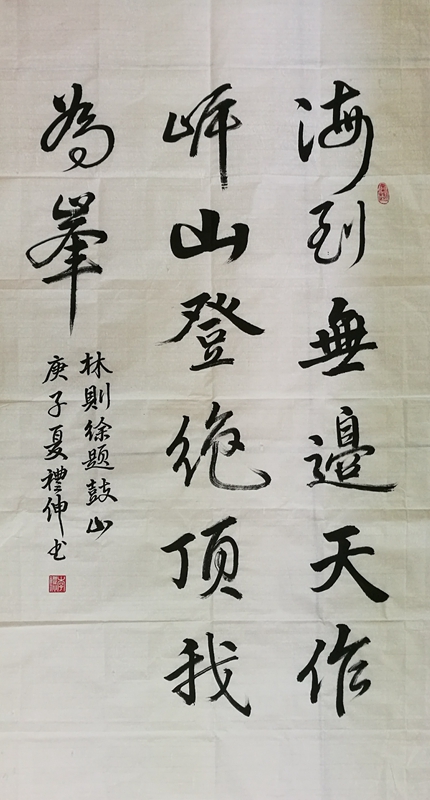 海到無邊天作
岸山登绝頂我
為峯
林則徐题鼓山
庚子夏禮伸书